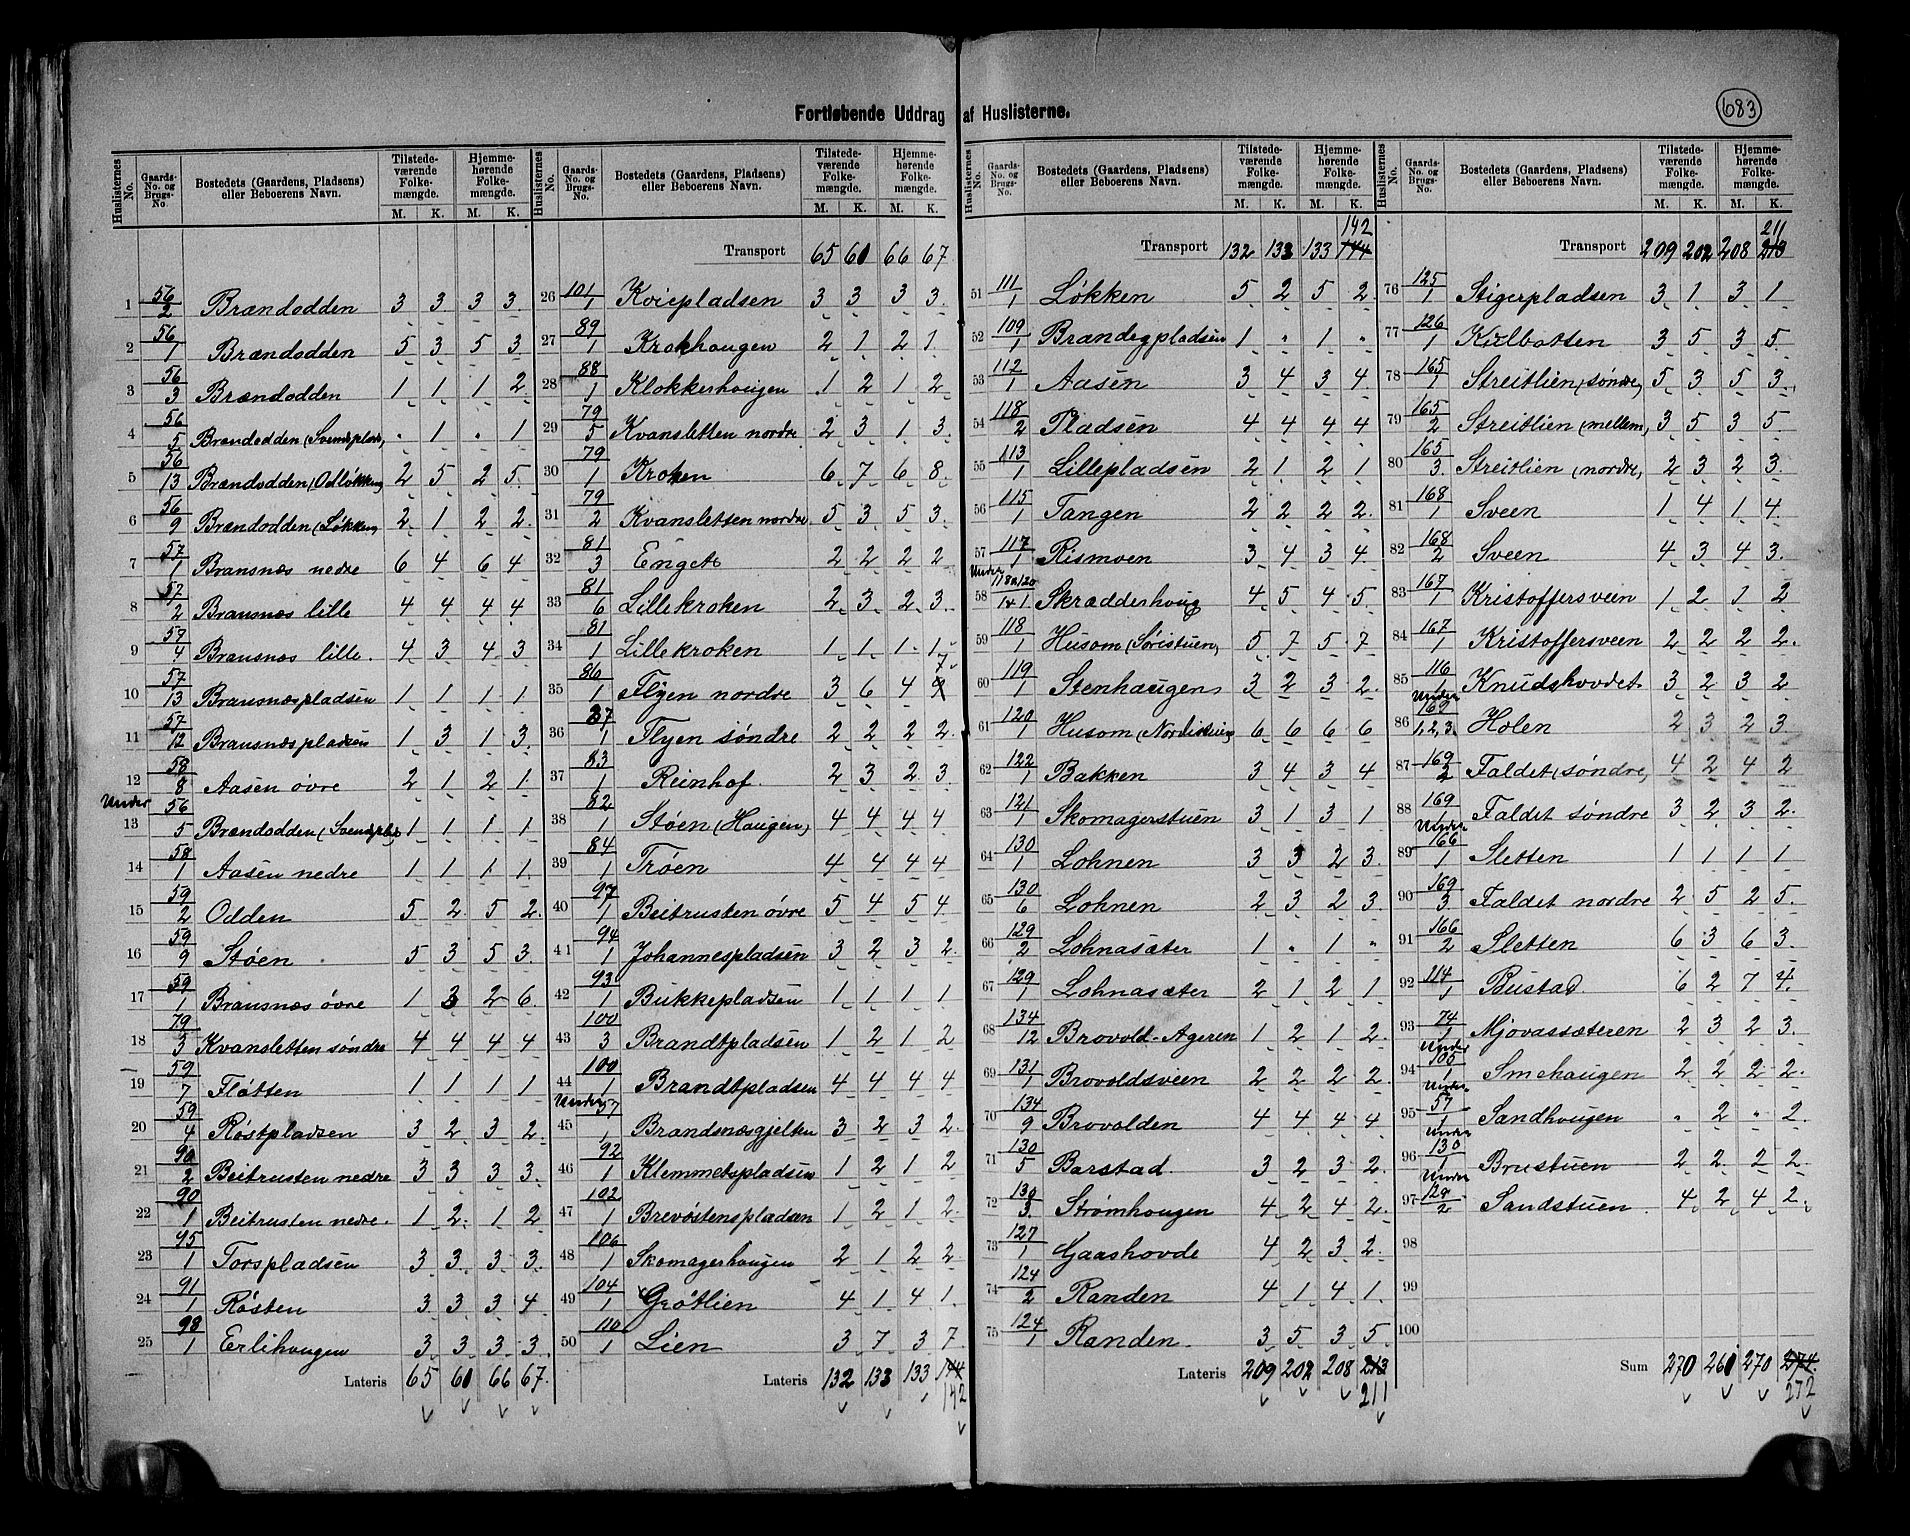 Fortløbende Uddrag af Huslisterne.
683
Huslisternes No. Gaards-No. og Brugs-No. Bostedets (Gaardens, Pladsens) eller Beboerens Navn. Tilstedeværende Folkemængde. M. K. Hjemmehørende Folkemængde. M. K.
1 56/2 Brændodden 3 3 3 3
2 56/1 Brændodden 5 3 5 3
3 56/3 Brændodden 1 1 1 2
4 56/5 Brændodden (Svendsplads) " 1 " 1
5 56/13 Brændodden (Odløkken) 2 5 2 5
6 56/9 Brændodden (Løkken) 2 1 2 2
7 57/1 Bransnæs nedre 6 4 6 4
8 57/2 Bransnæs lille 4 4 4 4
9 57/4 Bransnæs lille 4 3 4 3
10 57/13 Bransnæspladsen 1 1 1 1
11 57/12 Bransnæspladsen 1 3 1 3
12 58/8 Aasen øvre 2 1 2 1
13 Under 56/5 Brændodden (Svendspls) 1 1 1 1
14 58/1 Aasen nedre 1 1 1 1
15 59/2 Odden 5 2 5 2
16 59/9 Støen 5 3 5 3
17 59/1 Bransnæs øvre 1 3 2 6
18 79/3 Kvansletten søndre 4 4 4 4
19 59/7 Fløtten 1 1 1 1
20 59/4 Røstpladsen 3 2 3 2
21 90/2 Beitrusten nedre 3 3 3 3
22 90/1 Beitrusten nedre 1 2 1 2
23 95/1 Torspladsen 3 3 3 3
24 91/1 Røsten 3 3 3 4
25 98/1 Erlihaugen 3 3 3 3
Lateris 65 60 66 67
Huslisternes No. Gaards-No. og Brugs-No. Bostedets (Gaardens, Pladsens) eller Beboerens Navn. Tilstedeværende Folkemængde. M. K. Hjemmehørende Folkemængde. M. K.
Transport 65 60 66 67
26 101/1 Koiepladsen 3 3 3 3
27 89/1 Krokhaugen 2 1 2 1
28 88/1 Klokkerhaugen 1 2 1 2
29 79/5 Kvansletten nordre 2 3 1 3
30 79/1 Kroken 6 7 6 8
31 79/2 Kvansletten nordre 5 3 5 3
32 81/3 Enget 2 2 2 2
33 81/6 Lillekroken 2 3 2 3
34 81/1 Lillekroken 1 1 1 1
35 86/1 Flyen nordre 3 6 4 9 7
36 87/1 Flyen søndre 2 2 2 2
37 83/1 Reinhof 2 3 2 3
38 82/1 Støen (Haugen) 4 4 4 4
39 84/1 Trøen 4 4 4 4
40 97/1 Beitrusten øvre 5 4 5 4
41 94/1 Johannespladsen 3 2 3 2
42 93/1 Bukkepladsen 1 1 1 1
43 100/3 Brandtpladsen 1 2 1 2
44 100/1 Brandtpladsen 4 4 4 4
45 Under 57/1 Brandsnæsgjelten 3 2 3 2
46 92/1 Klemmetspladsen 1 2 1 2
47 102/1 Brevøstenspladsen 1 2 1 2
48 106/1 Skomagerhaugen 2 1 2 2
49 104/1 Grøtlien 4 1 4 1
50 110/1 Lien 3 7 3 7
Lateris 132 133 133 144 142
Huslisternes No. Gaards-No. og Brugs-No. Bostedets (Gaardens, Pladsens) eller Beboerens Navn. Tilstedeværende Folkemængde. M. K. Hjemmehørende Folkemængde. M. K.
Transport 132 133 133 144 142
51 111/1 Løkken 5 2 5 2
52 109/1 Brandegpladsen 1 " 1 "
53 112/1 Aasen 3 4 3 4
54 118/2 Pladsen 4 4 4 4
55 113/1 Lillepladsen 2 1 2 1
56 115/1 Tangen 2 2 2 2
57 117/1 Rismoen 3 4 3 4
58 Under 118 & 120/1 & 1 Skrædderhaug 4 5 4 5
59 118/1 Husom (Søristuen) 5 7 5 7
60 119/1 Stenhaugen 3 2 3 2
61 120/1 Husom (Nordistuen) 6 6 6 6
62 122/1 Bakken 3 4 3 4
63 121/1 Skomagerstuen 3 1 3 1
64 130/1 Lohnen 3 3 2 3
65 130/6 Lohnen 2 3 2 3
66 129/2 Lohnasæter 1 " 1 "
67 129/1 Lohnasæter 2 1 2 1
68 134/12 Brovold-Ageren 1 2 1 2
69 131/1 Brovoldsveen 2 2 2 2
70 134/9 Brovolden 4 4 4 4
71 130/5 Barstad 3 2 3 2
72 130/3 Strømhaugen 4 2 4 2
73 127/1 Gaashovde 4 2 3 2
74 124/2 Randen 4 1 4 1
75 124/1 Randen 3 5 3 5
Lateris 209 202 208 213 211
Huslisternes No. Gaards-No. og Brugs-No. Bostedets (Gaardens, Pladsens) eller Beboerens Navn. Tilstedeværende Folkemængde. M. K. Hjemmehørende Folkemængde. M. K.
Transport 209 202 208 213 211
76 125/1 Stigerpladsen 3 1 3 1
77 126/1 Kulbotten 3 5 3 5
78 165/1 Streitlien (søndre) 5 3 5 3
79 165/2 Streitlien (mellem) 3 5 3 5
80 165/3 Streitlien (nordre) 2 3 2 3
81 168/1 Sveen 1 4 1 4
82 168/2 Sveen 4 3 4 3
83 167/1 Kristoffersveen 1 2 1 2
84 167/1 Kristoffersveen 2 2 2 2
85 116/1 Knudshovdet 3 2 3 2
86 Under 169/1,2,3 Holen 2 3 2 3
87 169/2 Faldet (søndre) 4 2 4 2
88 169/1 Faldet søndre 3 2 3 2
89 Under 166/1 Sletten 1 1 1 1
90 169/3 Faldet nordre 2 5 2 5
91 166/2 Sletten 6 3 6 3
92 114/1 Bustad 6 2 7 4
93 74/1 Mjovassæteren 2 3 2 3
94 Under 105/1 Smehaugen 2 2 2 2
95 Under 57/1 Sandhaugen " 2 " 2
96 Under 130/1 Brustuen 2 2 2 2
97 Under 124/2 Sandstuen 4 2 4 2
98
99
100
Sum 270 260 270 274 272